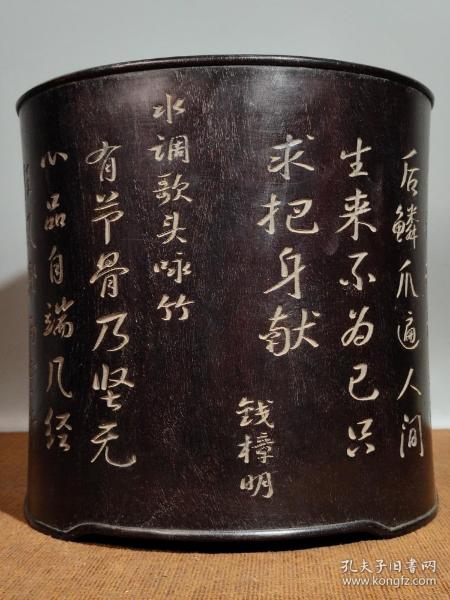 后鳞爪遍人间
生来不为己只
求把身献
钱樟明
水调歌头咏竹
有节骨乃坚无
心品自端几经
孔夫子旧书网
www.kongfz.com